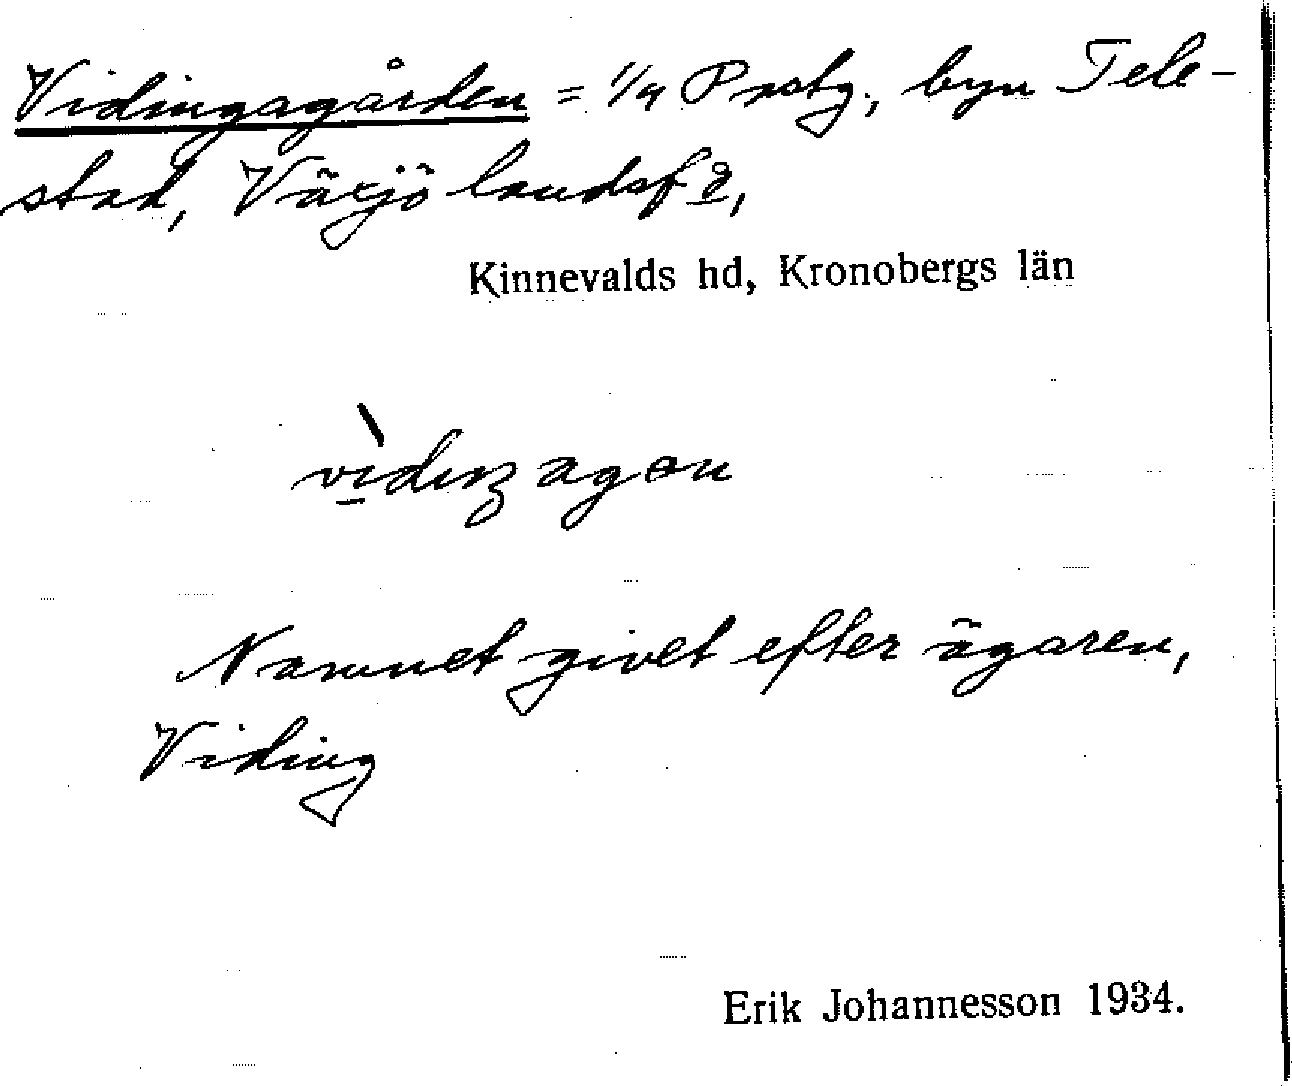 Vidingagården = 1/4 Prstg., byn Tele-
stad, Växjö landsf,
Kinnevalds hd, Kronobergs län
Namnet givet efter ägaren,
Viding
Erik Johannesson 1934.